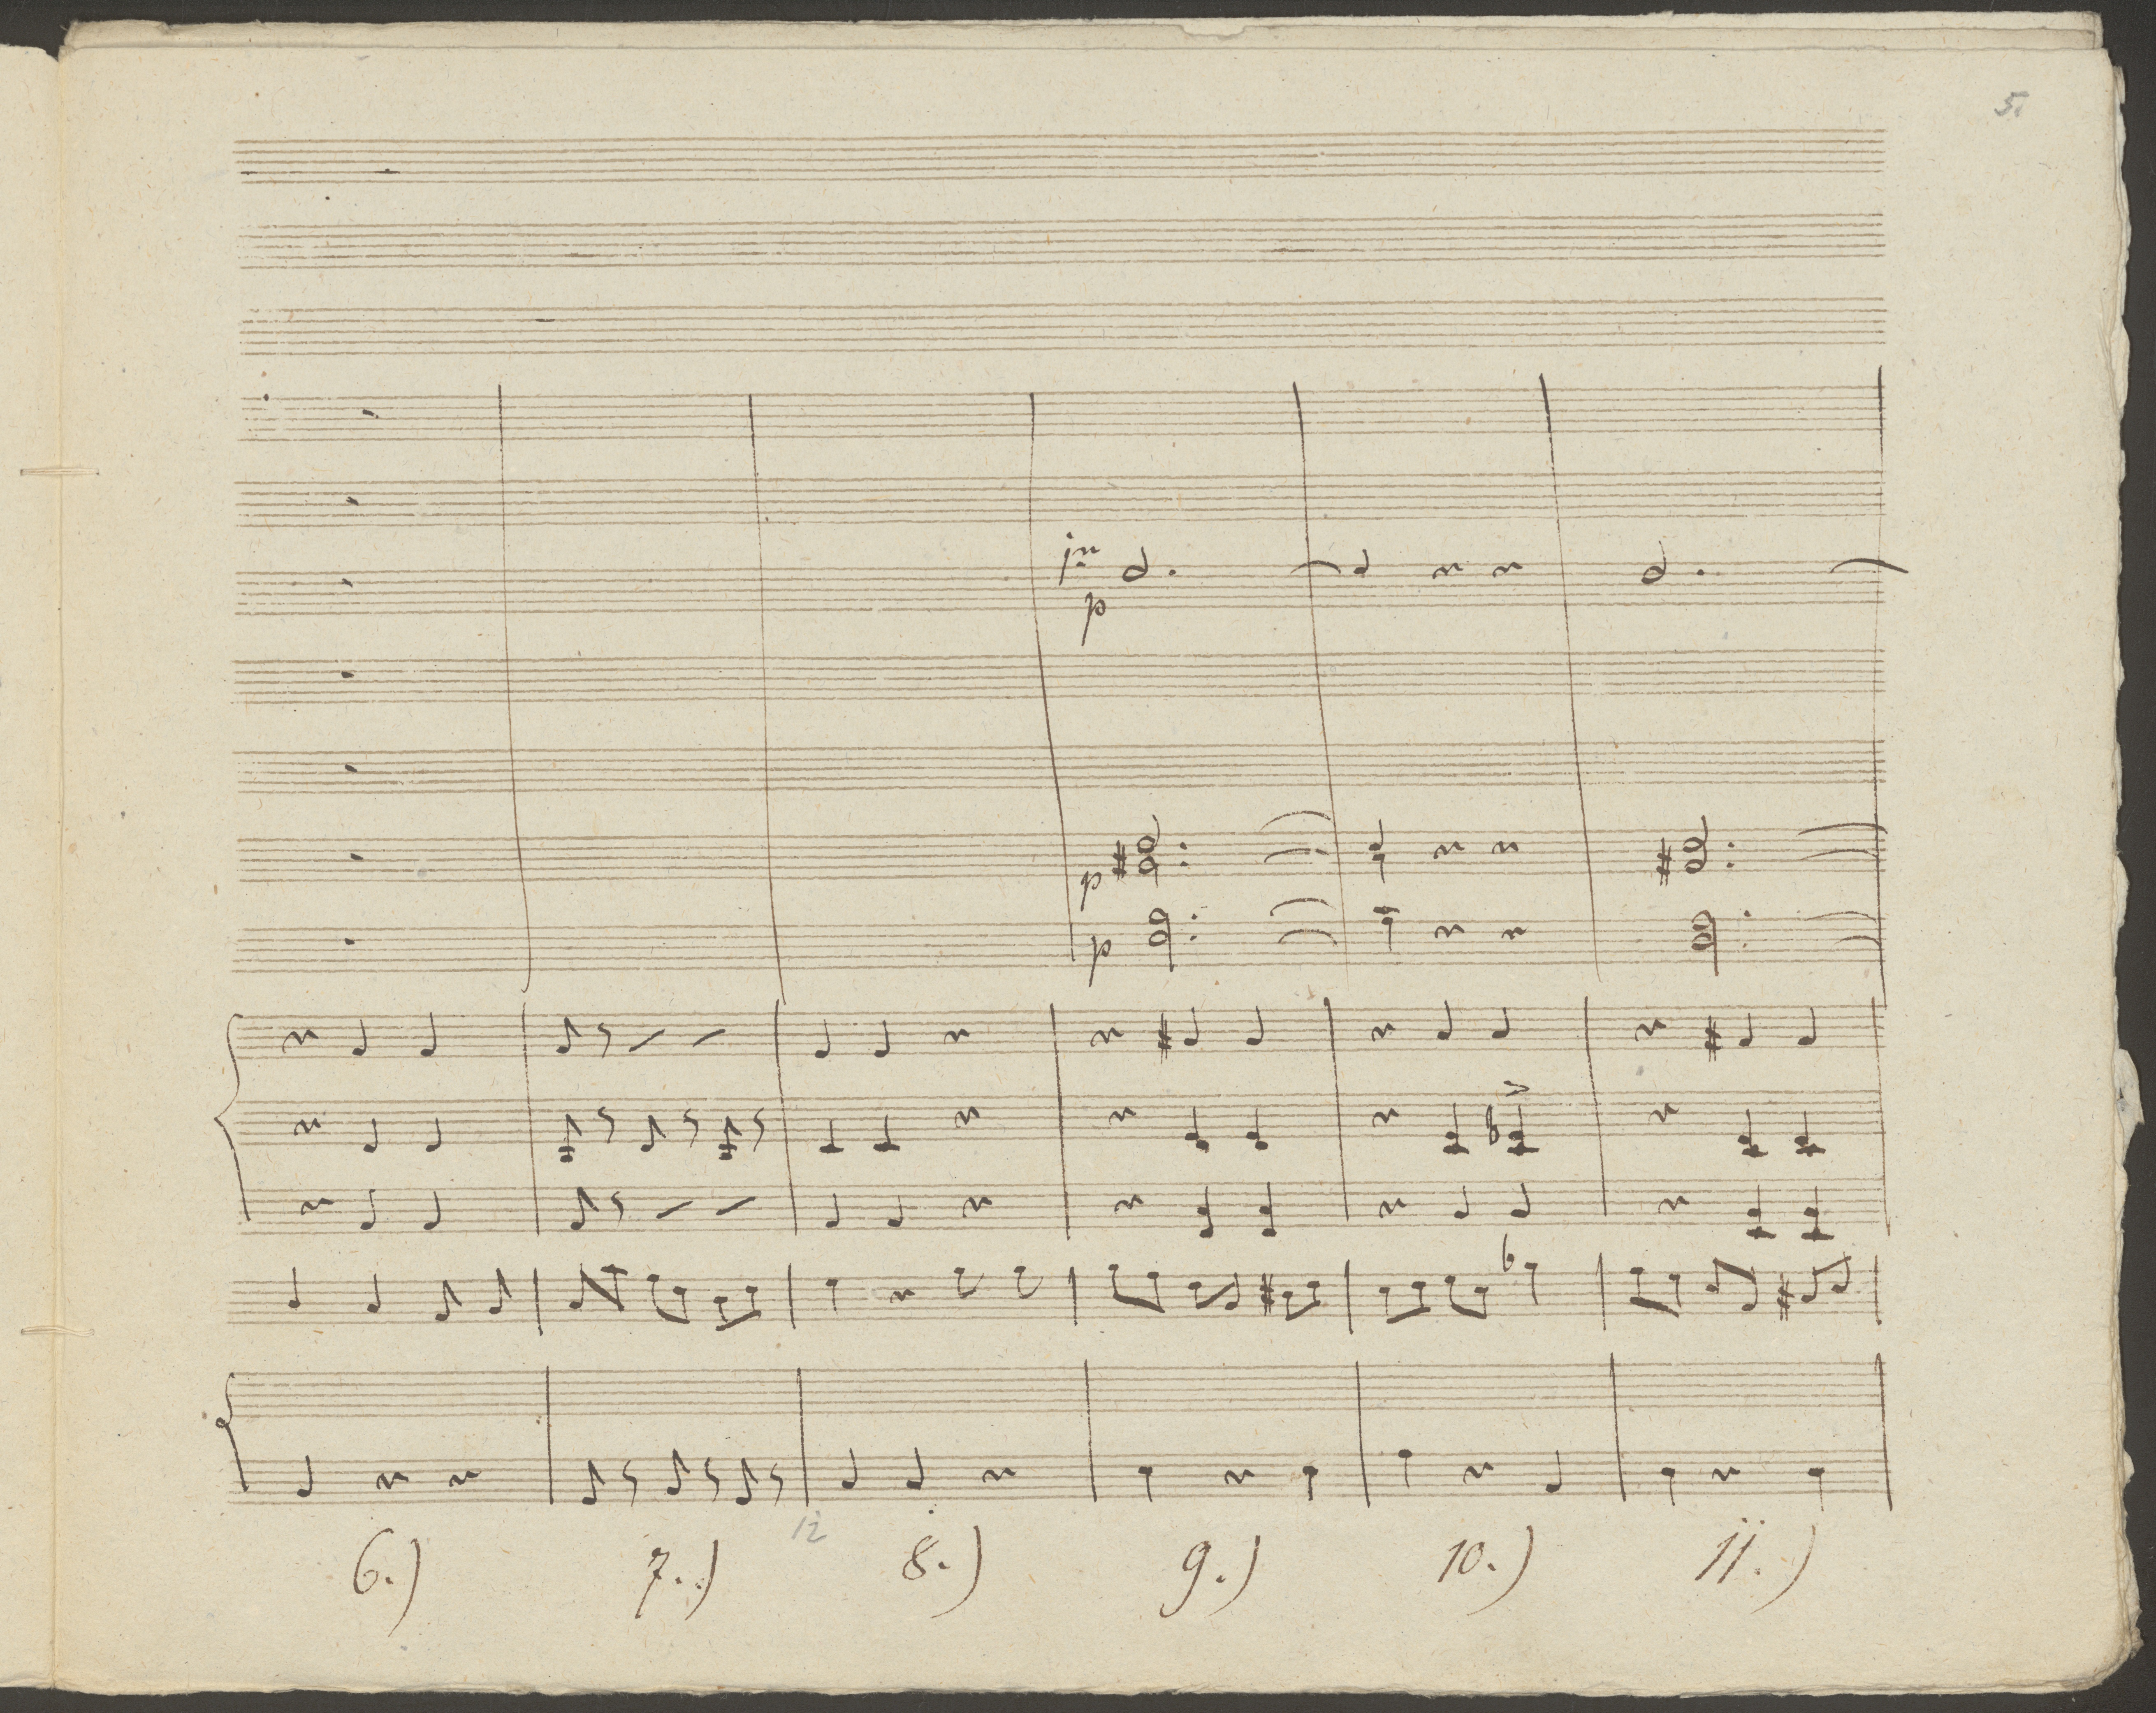 5.
p
p
p
12
6.) 7.) 8.) 9.) 10.) 11.)